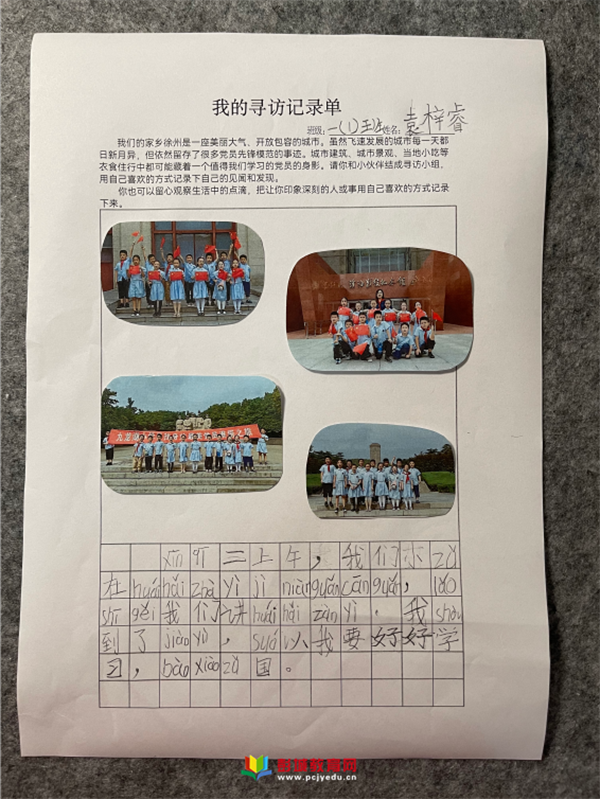 我的寻访记录单
班级：一(1)班 姓名：袁梓睿
我们的家乡徐州是一座美丽大气、开放包容的城市。虽然飞速发展的城市每一天都
日新月异，但依然留存了很多党员先锋模范的事迹。城市建筑、城市景观、当地小吃等
衣食住行中都可能藏着一个值得我们学习的党员的身影。请你和小伙伴结成寻访小组，
用自己喜欢的方式记录下自己的见闻和发现。
你也可以留心观察生活中的点滴，把让你印象深刻的人或事用自己喜欢的方式记录
下来。
xīn qī 三上午，我们小 zǔ
在 huái hǎi zhàn yì jì niàn guǎn cān guān，lǎo
shī gěi 我们讲 huái hǎi zàn yì。我 shòu
到了 jiào yù，suǒ 以我要好好学
习，bào xiào zǔ 国。
射游教育网
www.pcjyedu.cn